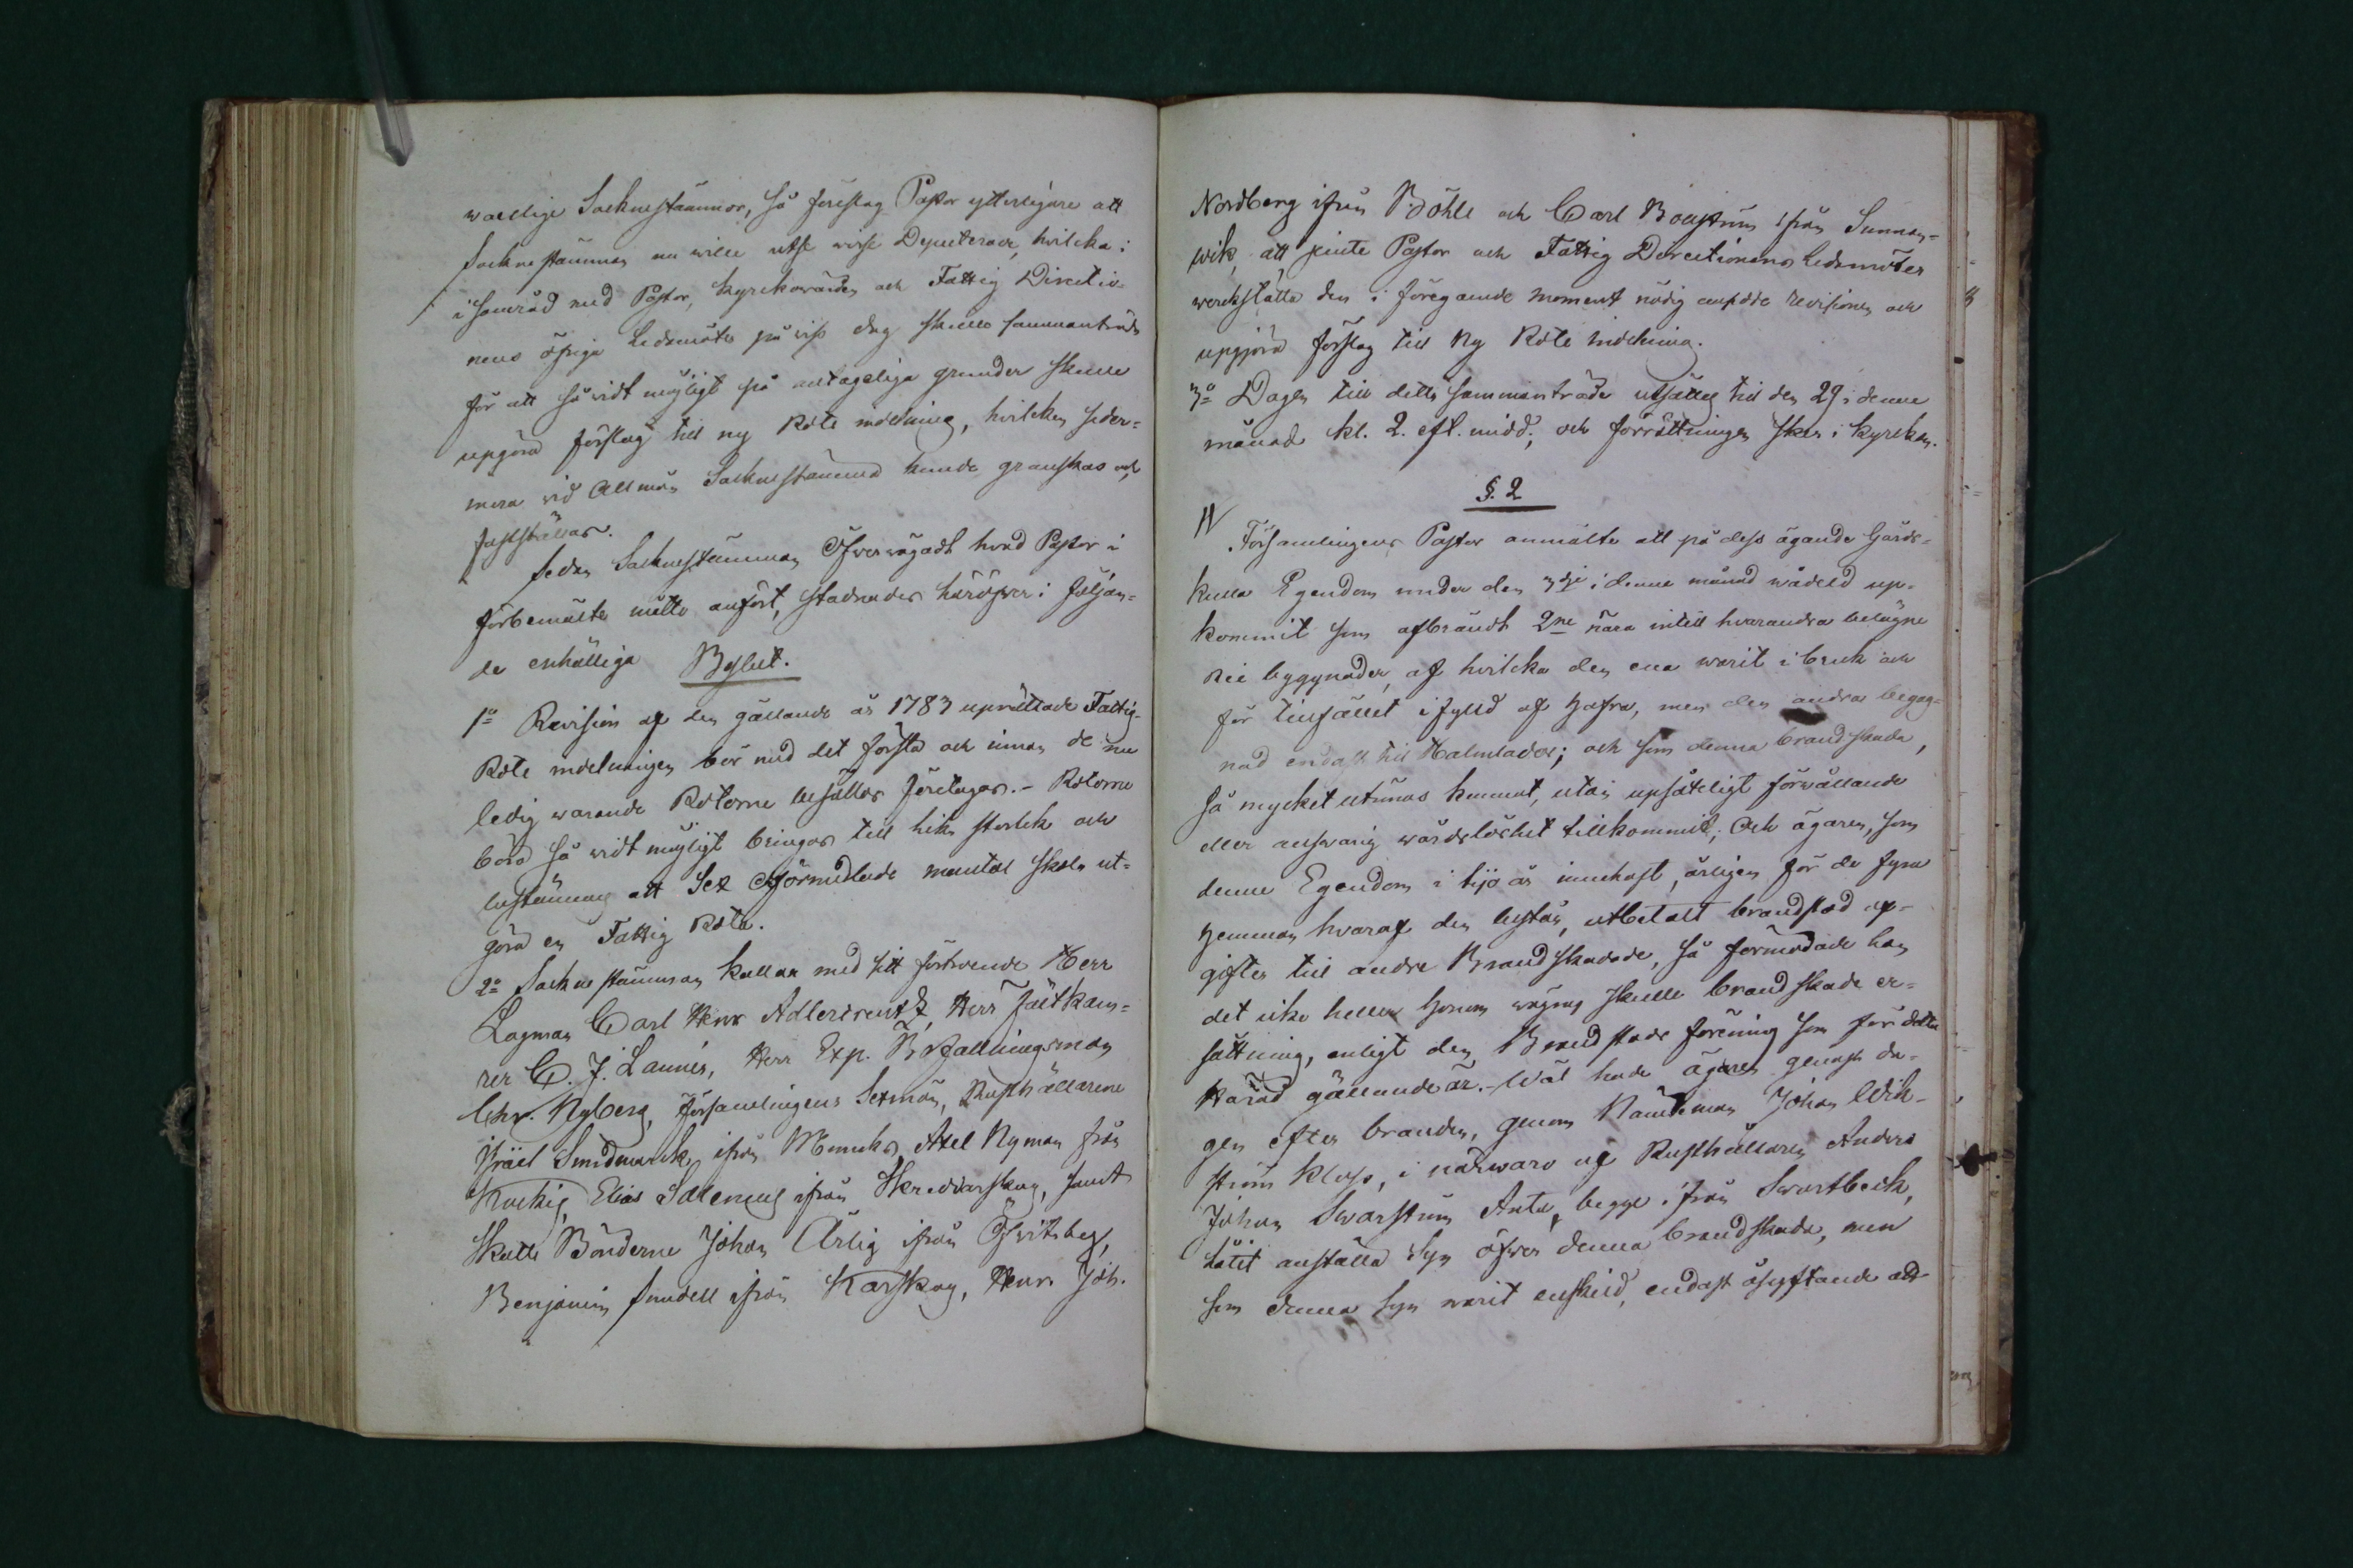 wardlige Socknestämmor, så föreslog Pastor ytterligare att
Socknestämman nu wille utse wisse Deputerade, hvilcka i
i samråd med Pastor, kyrckowärden och Fattig Directio-
nens öfriga Ledamöter på wiss dag skulle sammanträda
för att så widt möjligt på antageliga grunder skulle
upgöra förslag till ny Rote indelning, hvilcken seder-
mera wid Allmän Socknestämma kunde granskas och
fastställas.
Sedan Socknestämman Öfwervägadt hvad Pastor i
förbemälte måtto anfört, stadnades häröfver i följan-
de enhälliga Beslut.
1o Revision af den gällande år 1783 uprättade Fattig-
Rote indelningen bör med det första och innan de nu
ledig warande Roterne besättas företagas. - Roterne
böra så widt möjligt bringas till lika storlek och
bestämmas att Sex Oförmedlade mantal skola ut-
göra en Fattig Rota.
2o Socknestämman kallar med sitt förtroende Herr
Lagman Carl Henr Adlercreutz, Herr Fältkam-
rer C. J. Lannér, Herr Exp. Befallningsman
Chr. Nyberg, Församlingens Sexmän, Rusthållarene
Israel Smidmarck ifrån Muncks, Axel Nyman från
Kockis, Elias Idlemus ifrån Skreddarskog, samt
Skatte Bönderne Johan Ärlig ifrån Öfwitsbey,
Benjamin Sundell ifrån Karskog, Henr Joh.
Nordberg ifrån Böhle och Carl Bouström ifrån Sunnan-
wik, att jemte Pastor och Fattig Directionens Ledamöter
werckställa den i föregående moment nödig ansedde revisionen och
upgjöra förslag till Ny Rote indelning.
3o Dagen till detta sammanträde utsättes till den 29 i denne
månad kl. 2. eft. midd; och förrättningen sker i kyrckan.
§. 2
Församlingens Pastor anmälte att på dess ägande Gårds-
kulla Egendom under den 3dje i denna månad wådeld up-
kommit som afbrändt 2ne nära intill hvarandra belägne
Rie byggnader, af hvilcka den ena warit i bruk och
för tillfället ifylld af Hafra, men den andra begag-
nad endast till Halmlador; och som denna brandskada,
så mycket utrönas kunnat, utan upsåteligt förwållande
eller answarig wårdslöshet tillkommit; Och ägaren, som
denne Egendom i tijo år innehaft, årligen för de fyra
Hemman hvaraf den består, utbetalt brandstod af-
gifter till andre Brandskadade, så förmodade han
det icke heller honom wägras skulle brandskade er-
sättning, enligt den Brandstods förening som för detta
Härad gällande är. - Wäl hade ägaren genast da-
gen efter branden, genom Nämdeman Johan Wik-
ström Kloss, i närwaro af Rusthållaren Anders
Johan Swarström Anta, begge ifrån Swartbeck,
låtit anställa Syn öfwer denna brandskada, men
som denna Syn warit enskild, endast åsyftande att